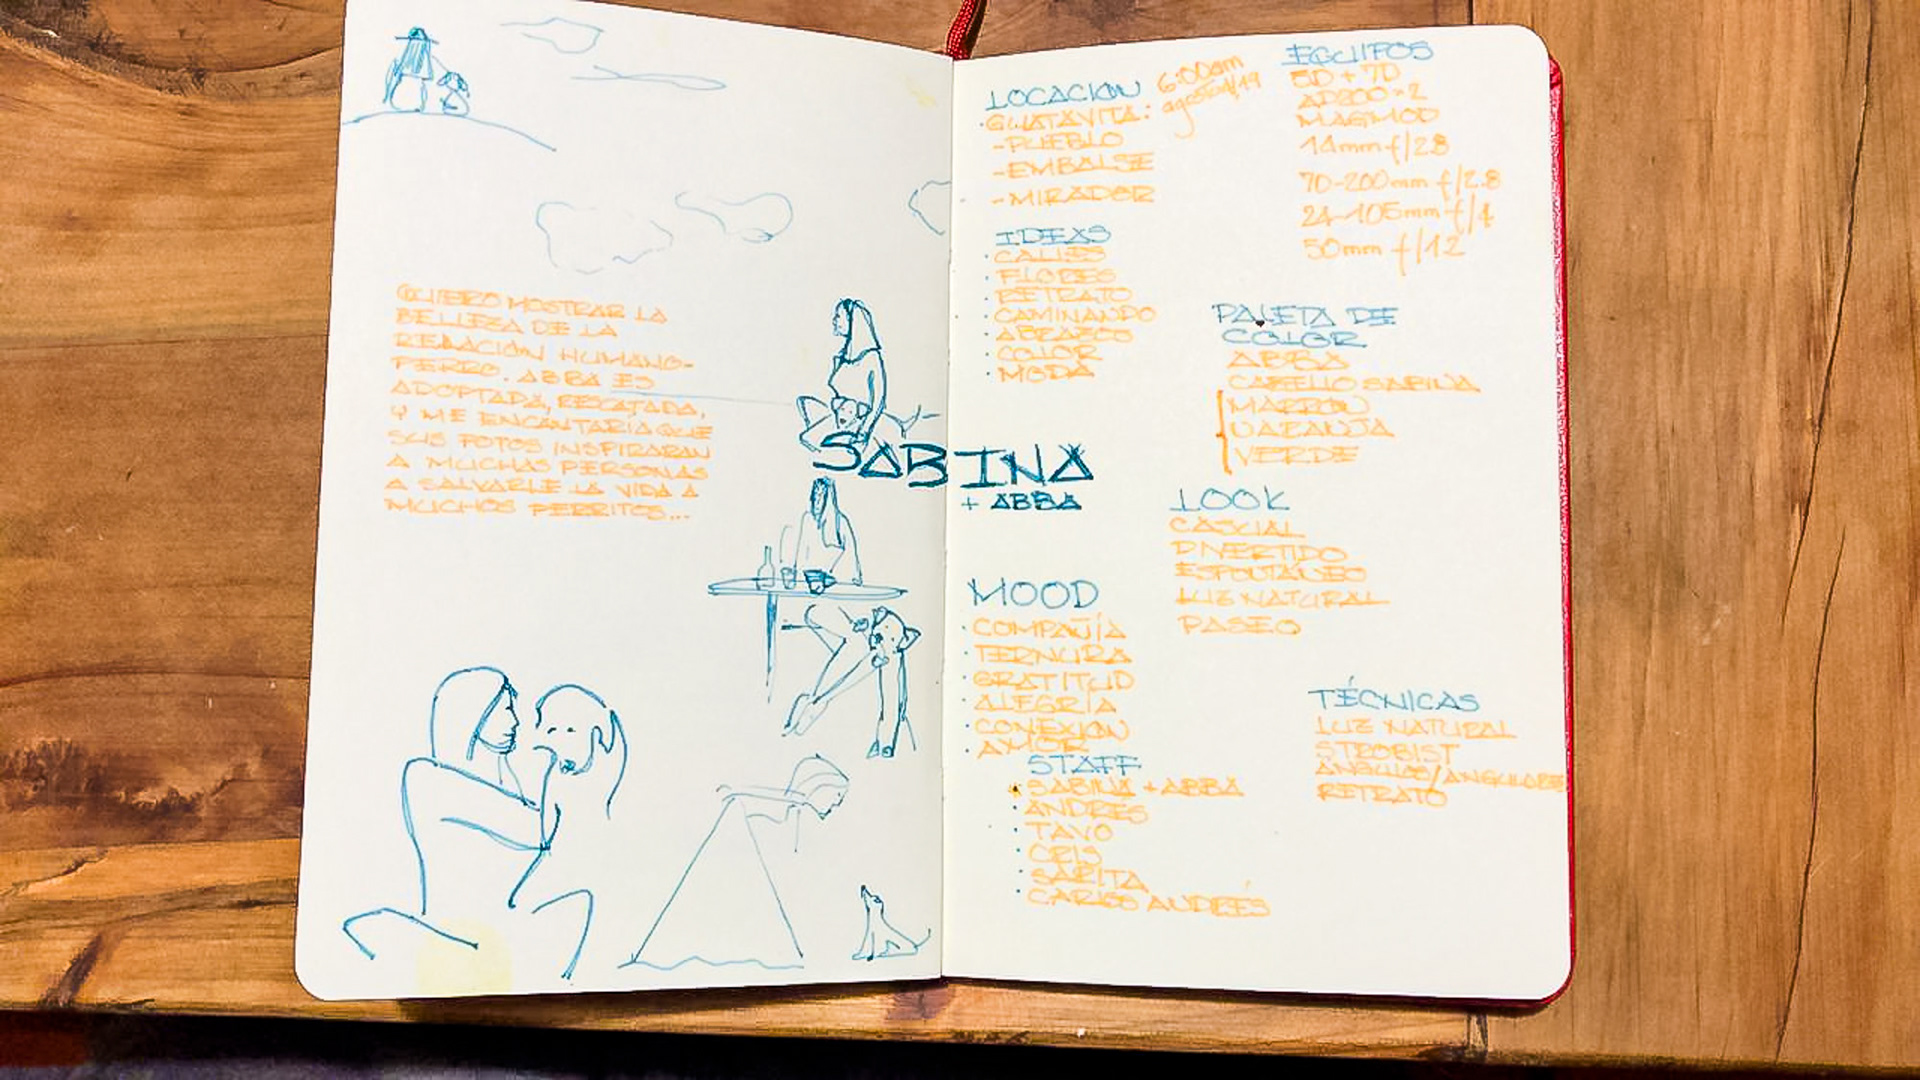 QUIERO MOSTRAR LA
BELLEZA DE LA
RELACIÓN HUMANO-
PERRO. ABBA ES
ADOPTADA, RESCATADA,
Y ME ENCANTARÍA QUE
SUS FOTOS INSPIRARAN
A MUCHAS PERSONAS
A SALVARLE LA VIDA A
MUCHOS PERRITOS...
SABINA
+ ABBA
LOCACIÓN
6:00am
agosto 4/19
GUATAVITA:
-PUEBLO
-EMBALSE
-MIRADOR
IDEAS
· CALLES
· FLORES
· RETRATO
· CAMINANDO
· ABRAZOS
· COLOR
· MODA
MOOD
· COMPAÑÍA
· TERNURA
· GRATITUD
· ALEGRÍA
· CONEXIÓN
· AMOR
STAFF
· SABINA + ABBA
· ANDRÉS
· TAVO
· CRIS
· SARITA
· CARLOS ANDRÉS
EQUIPOS
5D + 7D
AD200×2
MAGMOD
14mm f/2.8
70-200mm f/2.8
24-105mm f/4
50mm f/1.2
PALETA DE
COLOR
ABBA
CABELLO SABINA
MARRÓN
NARANJA
VERDE
LOOK
CASUAL
DIVERTIDO
ESPONTÁNEO
LUZ NATURAL
PASEO
TÉCNICAS
LUZ NATURAL
STROBIST
ÁNGULOS/ANGULARES
RETRATO